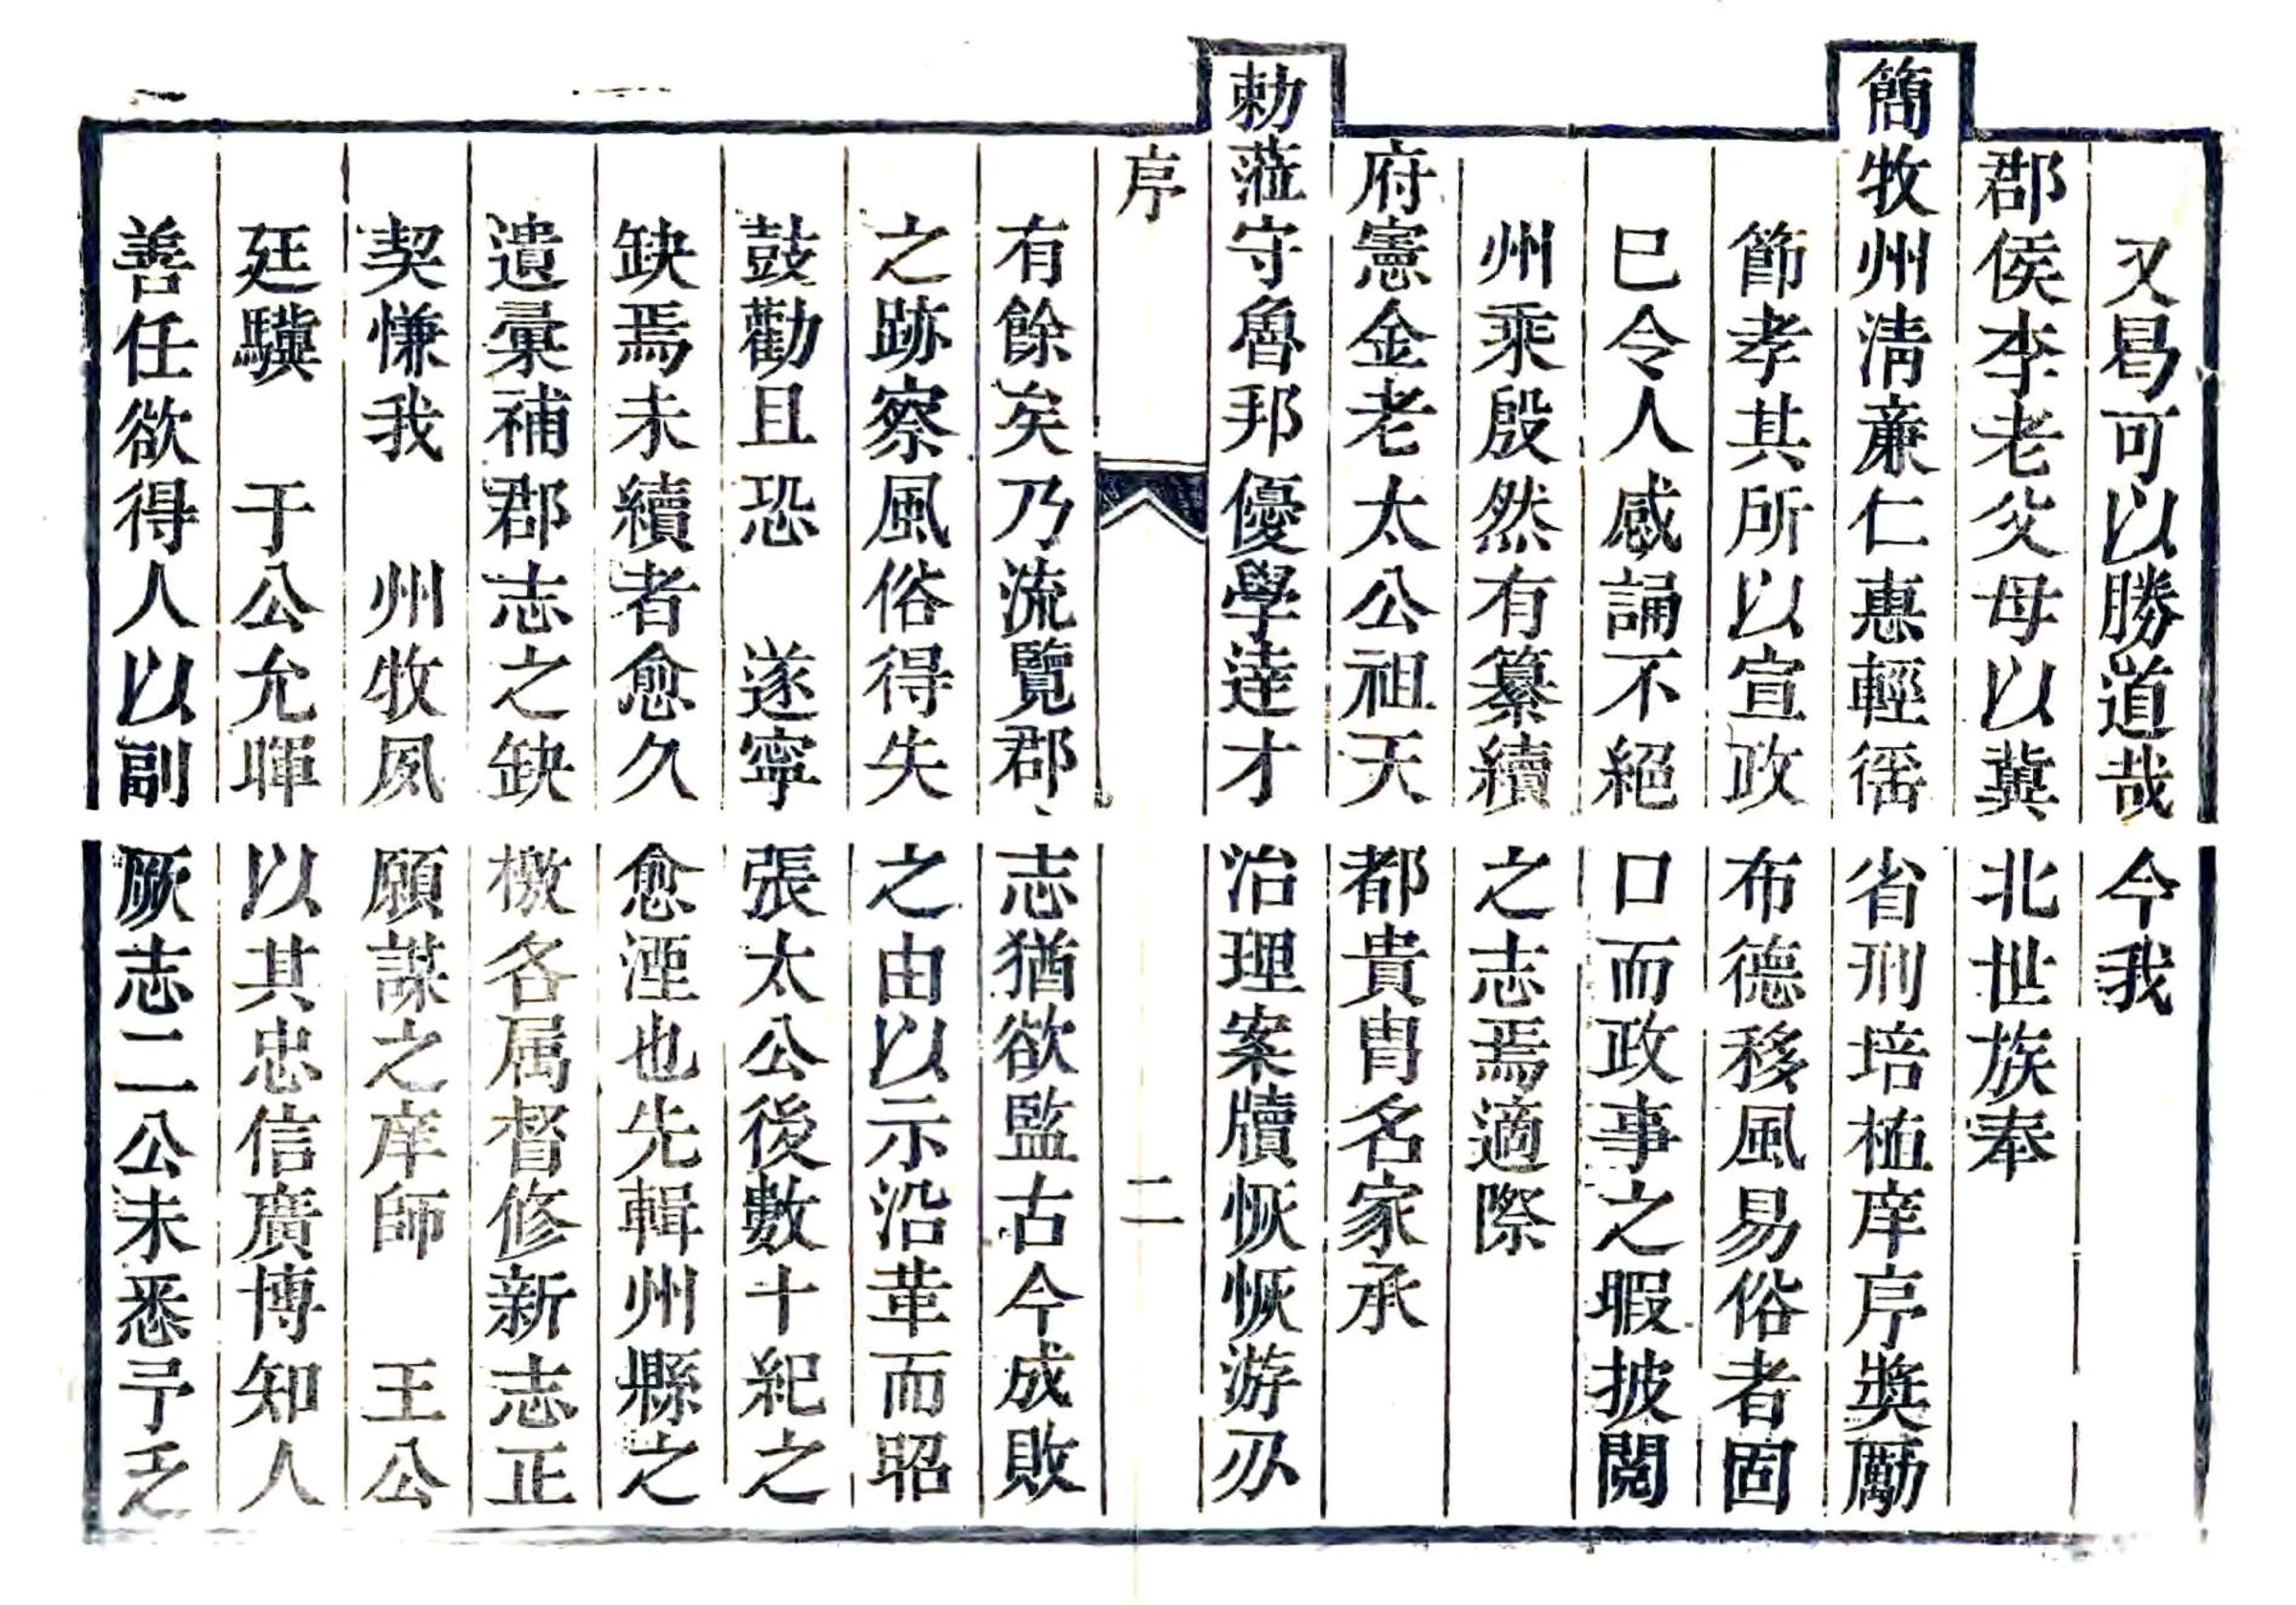 又曷可以勝道哉今我
郡侯李老父母以冀北世族奉
簡牧州清亷仁惠輕徭省刑培植庠序奬勵
節孝其所以宣政布德移風易俗者固
已令人感誦不絕口而政事之暇披閱
州乘殷然有纂續之志焉適際
府憲金老太公祖天都貴胄名家承
勅蒞守魯邦優學逹才治理案牘恢恢游刃
序 二
有餘矣乃流覽郡志猶欲監古今成敗
之跡察風俗得失之由以示沿革而昭
鼓勸且恐 遂寧張太公後數十紀之
缺焉未續者愈久愈湮也先輯州縣之
遺彙補郡志之缺檄各属督修新志正
契慊我 州牧夙願謀之庠師 王公
廷驥 于公允暉以其忠信廣博知人
善任欲得人以副厥志二公未悉予之